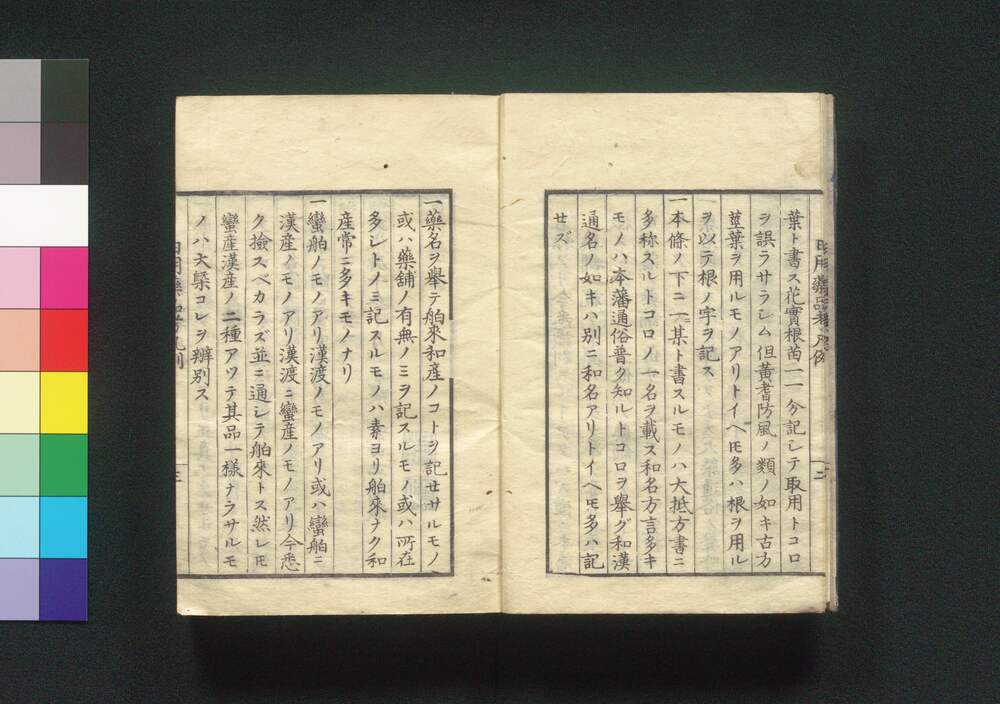 日用藥品考凡例
二
葉ト書ス花實根苗一一分記シテ取用トコロ
ヲ誤ラサラシム但黄耆防風ノ類ノ如キ古方
莖葉ヲ用ルモノアリトイヘ𪜈多ハ根ヲ用ル
ヲ以テ根ノ字ヲ記ス
一本條ノ下ニ一某ト書スルモノハ大抵方書ニ
多称スルトコロノ一名ヲ載ス和名方言多キ
モノハ本藩通俗普ク知ルトコロヲ舉グ和漢
通名ノ如キハ別ニ和名アリトイヘ𪜈多ハ記
せズ
一藥名ヲ舉テ舶來和産ノコトヲ記せサルモノ
或ハ藥舗ノ有無ノミヲ記スルモノ或ハ所在
多シトノミ記スルモノハ素ヨリ舶來ナク和
産常ニ多キモノナリ
一蠻舶ノモノアリ漢渡ノモノアリ或ハ蠻舶ニ
漢産ノモノアリ漢渡ニ蠻産ノモノアリ今悉
ク撿スベカラズ並ニ通シテ舶來トス然レ𪜈
蠻産漢産ノ二種アツテ其品一樣ナラサルモ
ノハ大槩コレヲ辨別ス
日用藥品考凡例
三